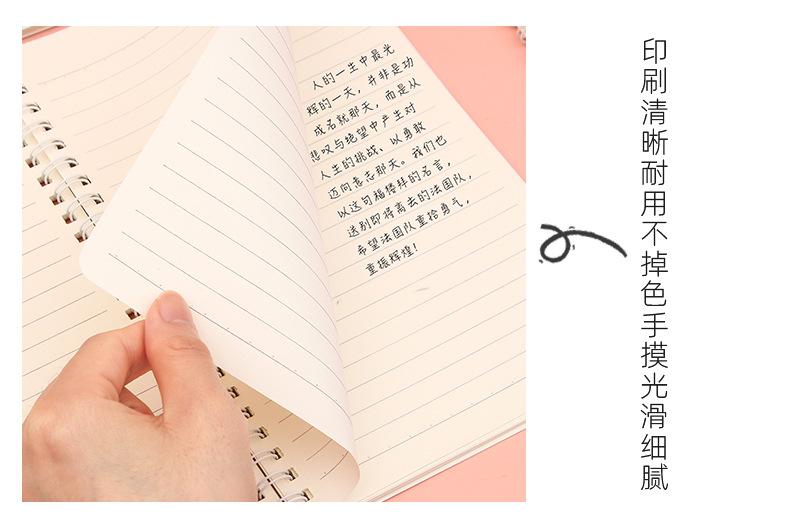 人的一生中最光
辉的一天，并非是功
成名就那天，而是从
悲叹与绝望中产生对
人生的挑战、以勇敢
迈向意志那天。我们也
以这句福楼拜的名言，
送别即将离去的法国队，
希望法国队重拾勇气，
重振辉煌！
印刷清晰耐用不掉色手摸光滑细腻